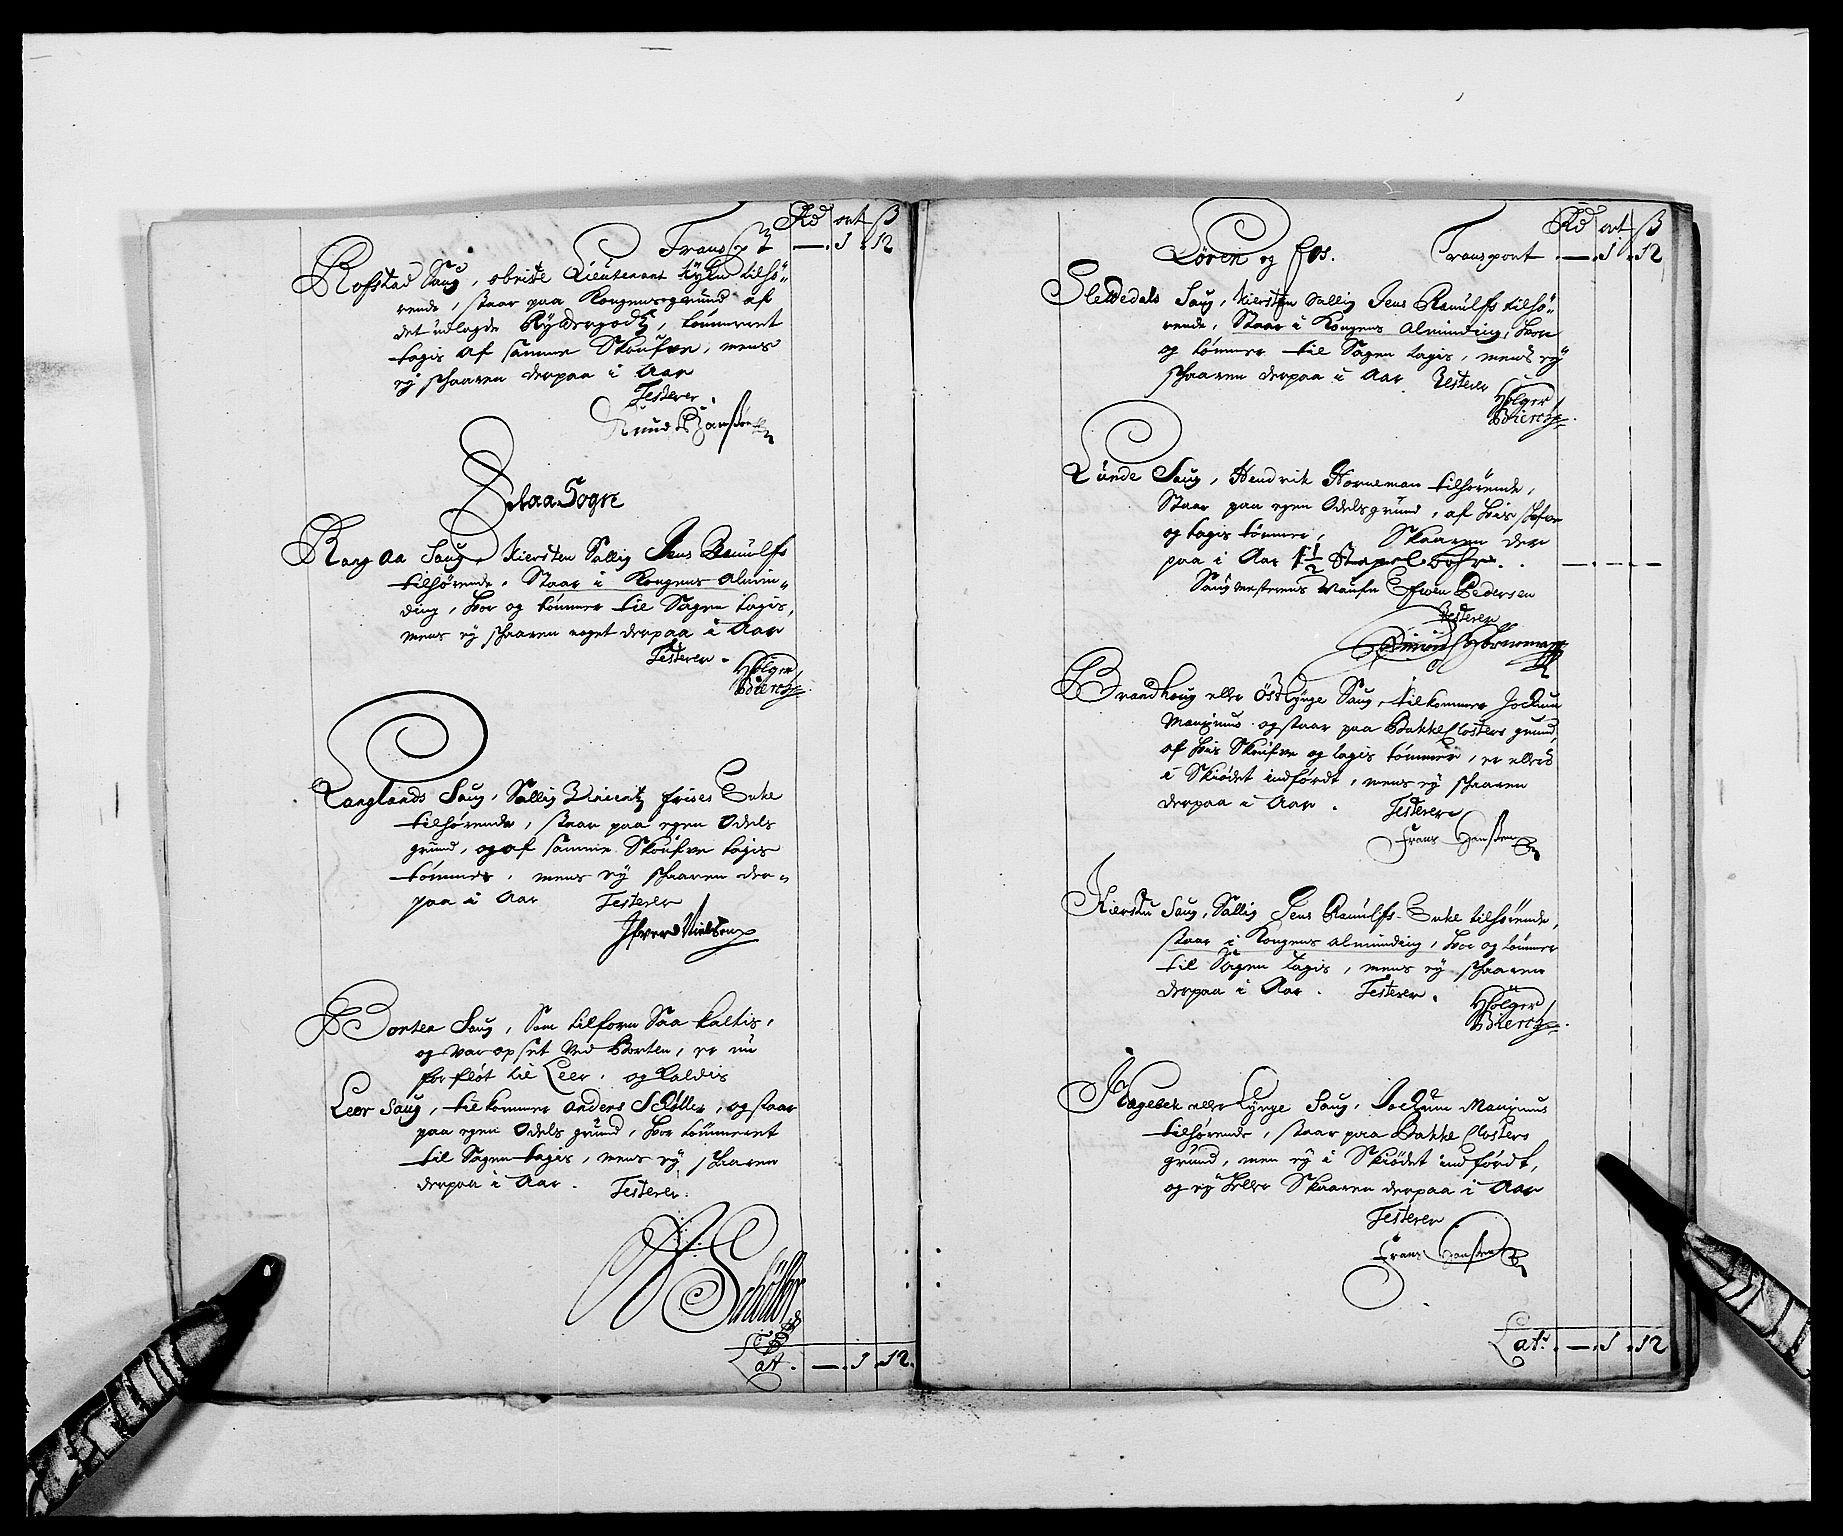 Rd ort ß
Transpt — . 1 . 12
Rofstad Saug, obriste Lieutenant tilhö-
rende, staar paa Kongens grund af
det udlagde Rytter godtz, tømmeret
tagis af samme Skoufve, mens
ej skaaren derpaa i Aar
Testerer
Knud
Flaa Sogn
Rang aa Saug, Kiersten Sallig Jens Ranulfs
tilhørende. Staar i Kongens Almin-
ding, hvor og tømmer til Sagen tagis,
mens ej skaaren noget derpaa i Aar
Testerer.
Holger
Biertz
Langlands Saug, Sallig Vincentz frises Enke
tilhørende, staar paa egen Odels
grund, og af samme Skoufve tagis
tømmer, mens ej skaaren der-
paa i Aar Testerer
Ifver Nielsen
Borten Saug, Som tilforn Saa kaltis,
og var opset ved Borten, er nu
forfløt til Leer. og kaldis
Leer Saug, tilkommer Anders Schøller, og staar
paa egen Odels grund, hvor tømmeret
til Sagen tagis, mens ej skaaren
derpaa i Aar. Testerer.
A Schöller
Lat. — . 1 . 12.
Rd ort ß
Løren og fos. Transport . — . 1 . 12
Sleddedals Saug, Kiersten Sallig Jens Ranulfs tilhö-
rende, Staar i Kongens Alminding, hvor
og tømmer til Sagen tagis, mens ej
skaaren derpaa i Aar Testerer
Holger
Biertz
Lunde Saug, Hendrik Horneman tilhørende,
Staar paa egen Odelsgrund, af hvis skofve
og tagis tømmer, Skaaren der
paa i Aar 1 1/2 Stapel bohr. . — . — . —
Saugmesterens Naufn Efven Pedersen
Testerer
Horneman
Brandhoug eller Øst Lynge Saug, tilkommer Jochum
Manginus og staar paa Bakke Closters grund,
af hvis Skoufve og tagis tømmer, er ellers
i Skiødet indførdt, mens ej skaaren
derpaa i Aar. Testerer
Frans Hanssen
Kierstu Saug, Sallig Jens Ranulfs Enke tilhørende,
staar i Kongens alminding, hvor og tømmer
til Sagen tagis, mens ej skaaren
derpaa i Aar. Testerer.
Holger
Biertz
Hagebek eller Lynge Saug, Jochum Manginus
tilhørende, staar paa Bakke Closters
grund, men ej i Skiødet indførdt,
og ej heller Skaaren derpaa i Aar
Testerer
Frans Hanssen
Lat. . — . 1 . 12